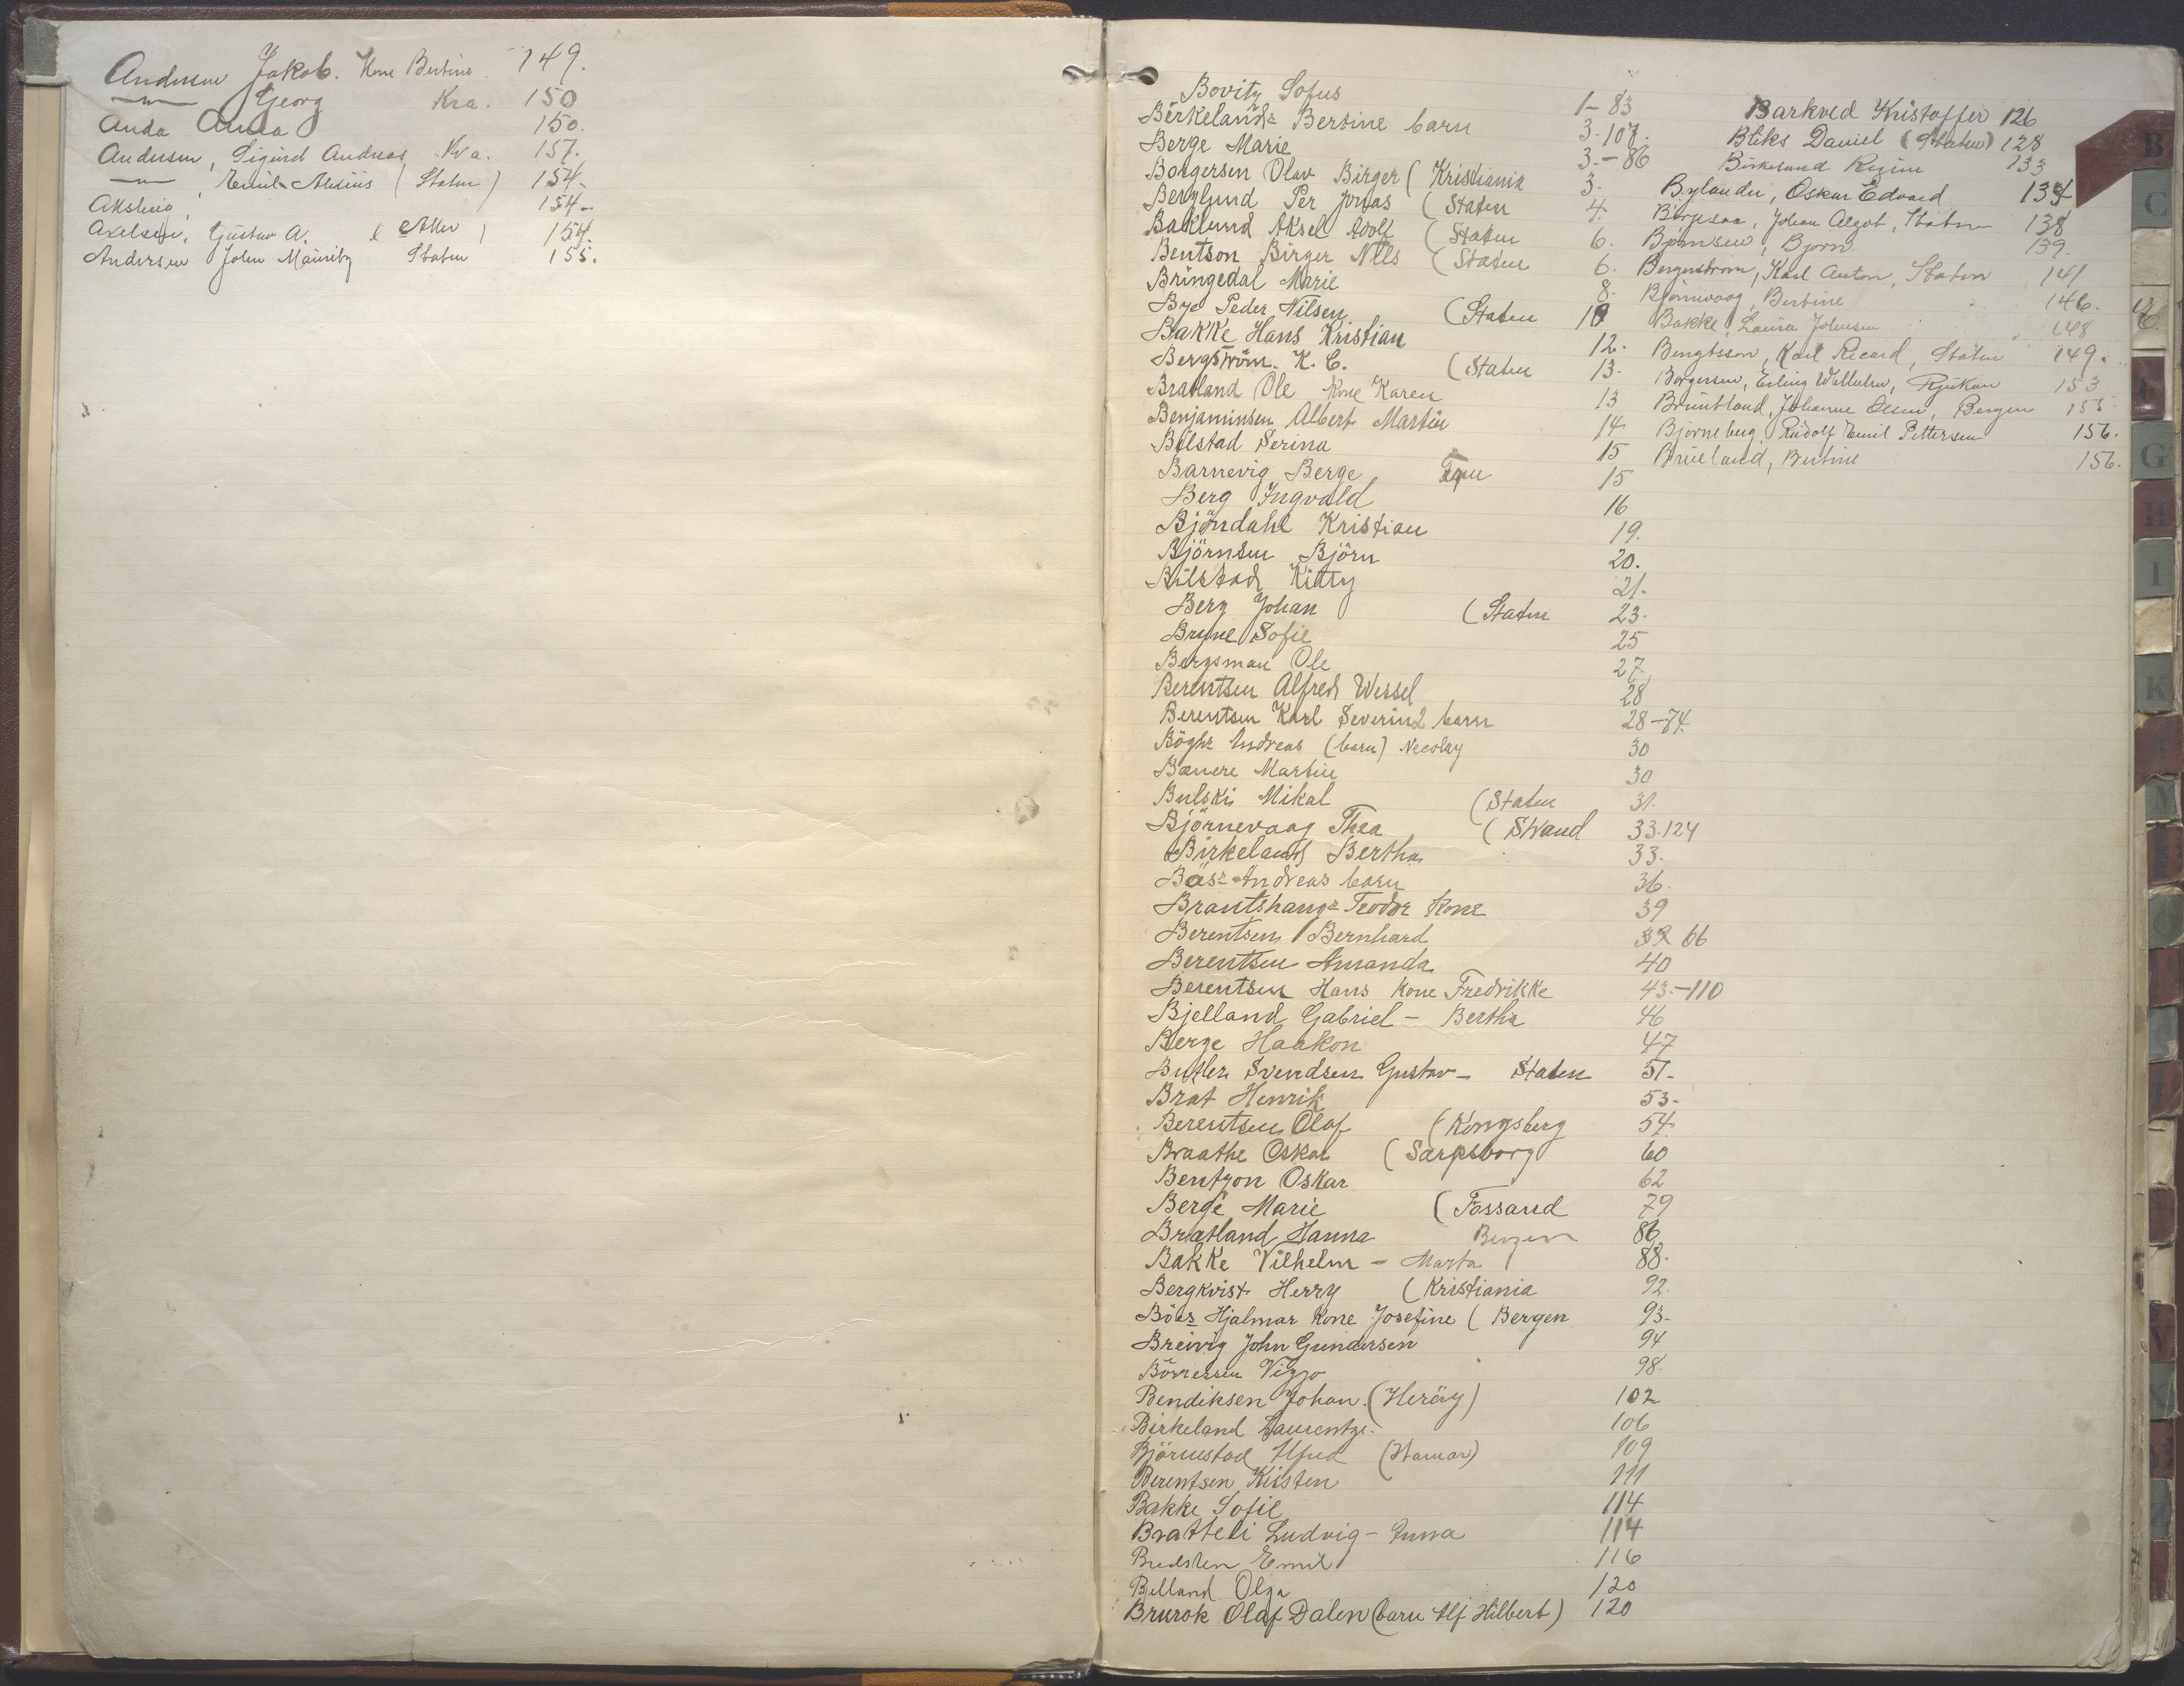 Andersen Jakob. Kone Bertine. 149.
—"— Georg Kra. 150
Anda Anna 150.
Andersen, Sigurd Andreas Kra. 157.
—"—, Emil (Staten) 154.
154.
Axelsen, Gustav A. 154.
Andersen John Mauritz Staten 155.
Bovitz Sofus 1-83
Berkelands Bertine barn 3-107.
Berge Marie 3.-86
Borgersen Olav Birger (Kristiania 3.
Berglund Per Jonas (Staten 4.
Baklund Aksel Adolf (Staten 6.
Bentson Birger Nils (Staten 6.
Bringedal Marie 8.
Bye Peder Nilsen (Staten 10
Bakke Hans Kristian 12.
Bergström. K. C. (Staten 13.
Bratland Ole Kone Karen 13
Benjaminsen Albert Martin 14
Bilstad Serina 15
Barnevig Berge 15
Berg Ingvald 16
Bjöndahl Kristian 19.
Björnsen Björn 20.
Bilstad Kitty 21.
Berg Johan (Staten 23.
Bryne Sofie 25
Bergsman Ole 27.
Berentsen Alfred Wessel 28
Berentsen Karl Severin 2 barn 28-74.
Andreas (barn) Nicolay 30
Martin 30
Bulski Mikal (Staten 31.
Björnevaag Thea (Strand 33.124
Birkeland Bertha 33.
Andreas barn 36.
Teodor Kone 39
Berentsen Bernhard 39 66
Berentsen Amanda 40
Berentsen Hans Kone Fredrikke 43.-110
Bjelland Gabriel - Bertha 46
Berge Haakon 47
Butler Svendsen Gustav - Staten 51-
Brat Henrik 53-
Berentsen Olaf (Kongsberg 54.
Braathe Oskar (Sarpsborg 60
Bentzon Oskar 62
Berge Marie (Fossand 79
Bratland Hanna Bergen 86
Bakke Vilhelm - Marta 88.
Bergkvist Herry (Kristiania 92.
Böes Hjalmar Kone Josefine (Bergen 93-
Breivig John Gundersen 94
Börresen Viggo 98.
Bendiksen Johan. (Heröy) 102
Birkeland Laurentze. 106
Björnestad Alfred (Hamar) 109
Berentsen Kirsten 111
Bakke Sofie 114
Bratteli Ludvig - Anna 114
Bredsten Emil 116
Belland Olga 120
Brurok Olaf Dalen (barn Alf Hilbert) 120
Barkved Kristoffer 126
Bliks Daniel (Staten) 128
Birkeland 133
Bylander, Oskar Edvard 134
Johan Algot, Staten 138
Bjørnsen, Bjørn 139.
Bergerstrøm, Karl Anton, Staten 141
Bjørnevaag, Bertine 146.
Bakke, Laura Johnsen 148
Bengtsson, Karl Ricard, Staten 149.
Borgersen, Erling Wilhelm, Rjukan 153
Bruntland, Johanne Olsen, Bergen 155.
Bjørneberg, Rudolf Emil Pettersen 156.
Brueland, Bertine 156.
B
C
G
H
I
K
M
V